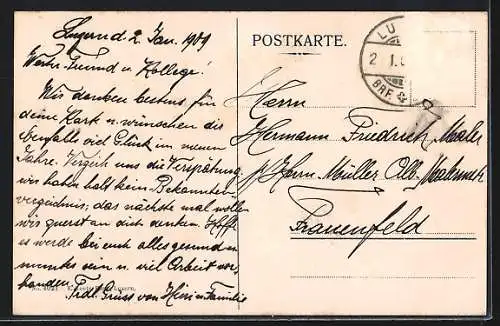 Luzern d 2 Jan. 1909
Werter Freund u Kollege!
Wir danken bestens für
deine Kart u wünschen dir
ebenfalls viel Glück im neuen
Jahre. Verzeih uns die Verspätung
wir haben halt kein Bekannten
verzeichnis, das nächste mal wollen
wir zuerst an dich denken. Hoffe
es werde bei euch alles gesund u
munter sein u. viel Arbeit vor-
handen. Frdl. Gruss von Heiri u Familie
POSTKARTE.
LU
2. I.
BRF.
Herrn
Hermann Friedrich, Maler
p/ Herrn Müller Malermstr
Frauenfeld
No. 4021
Luzern.